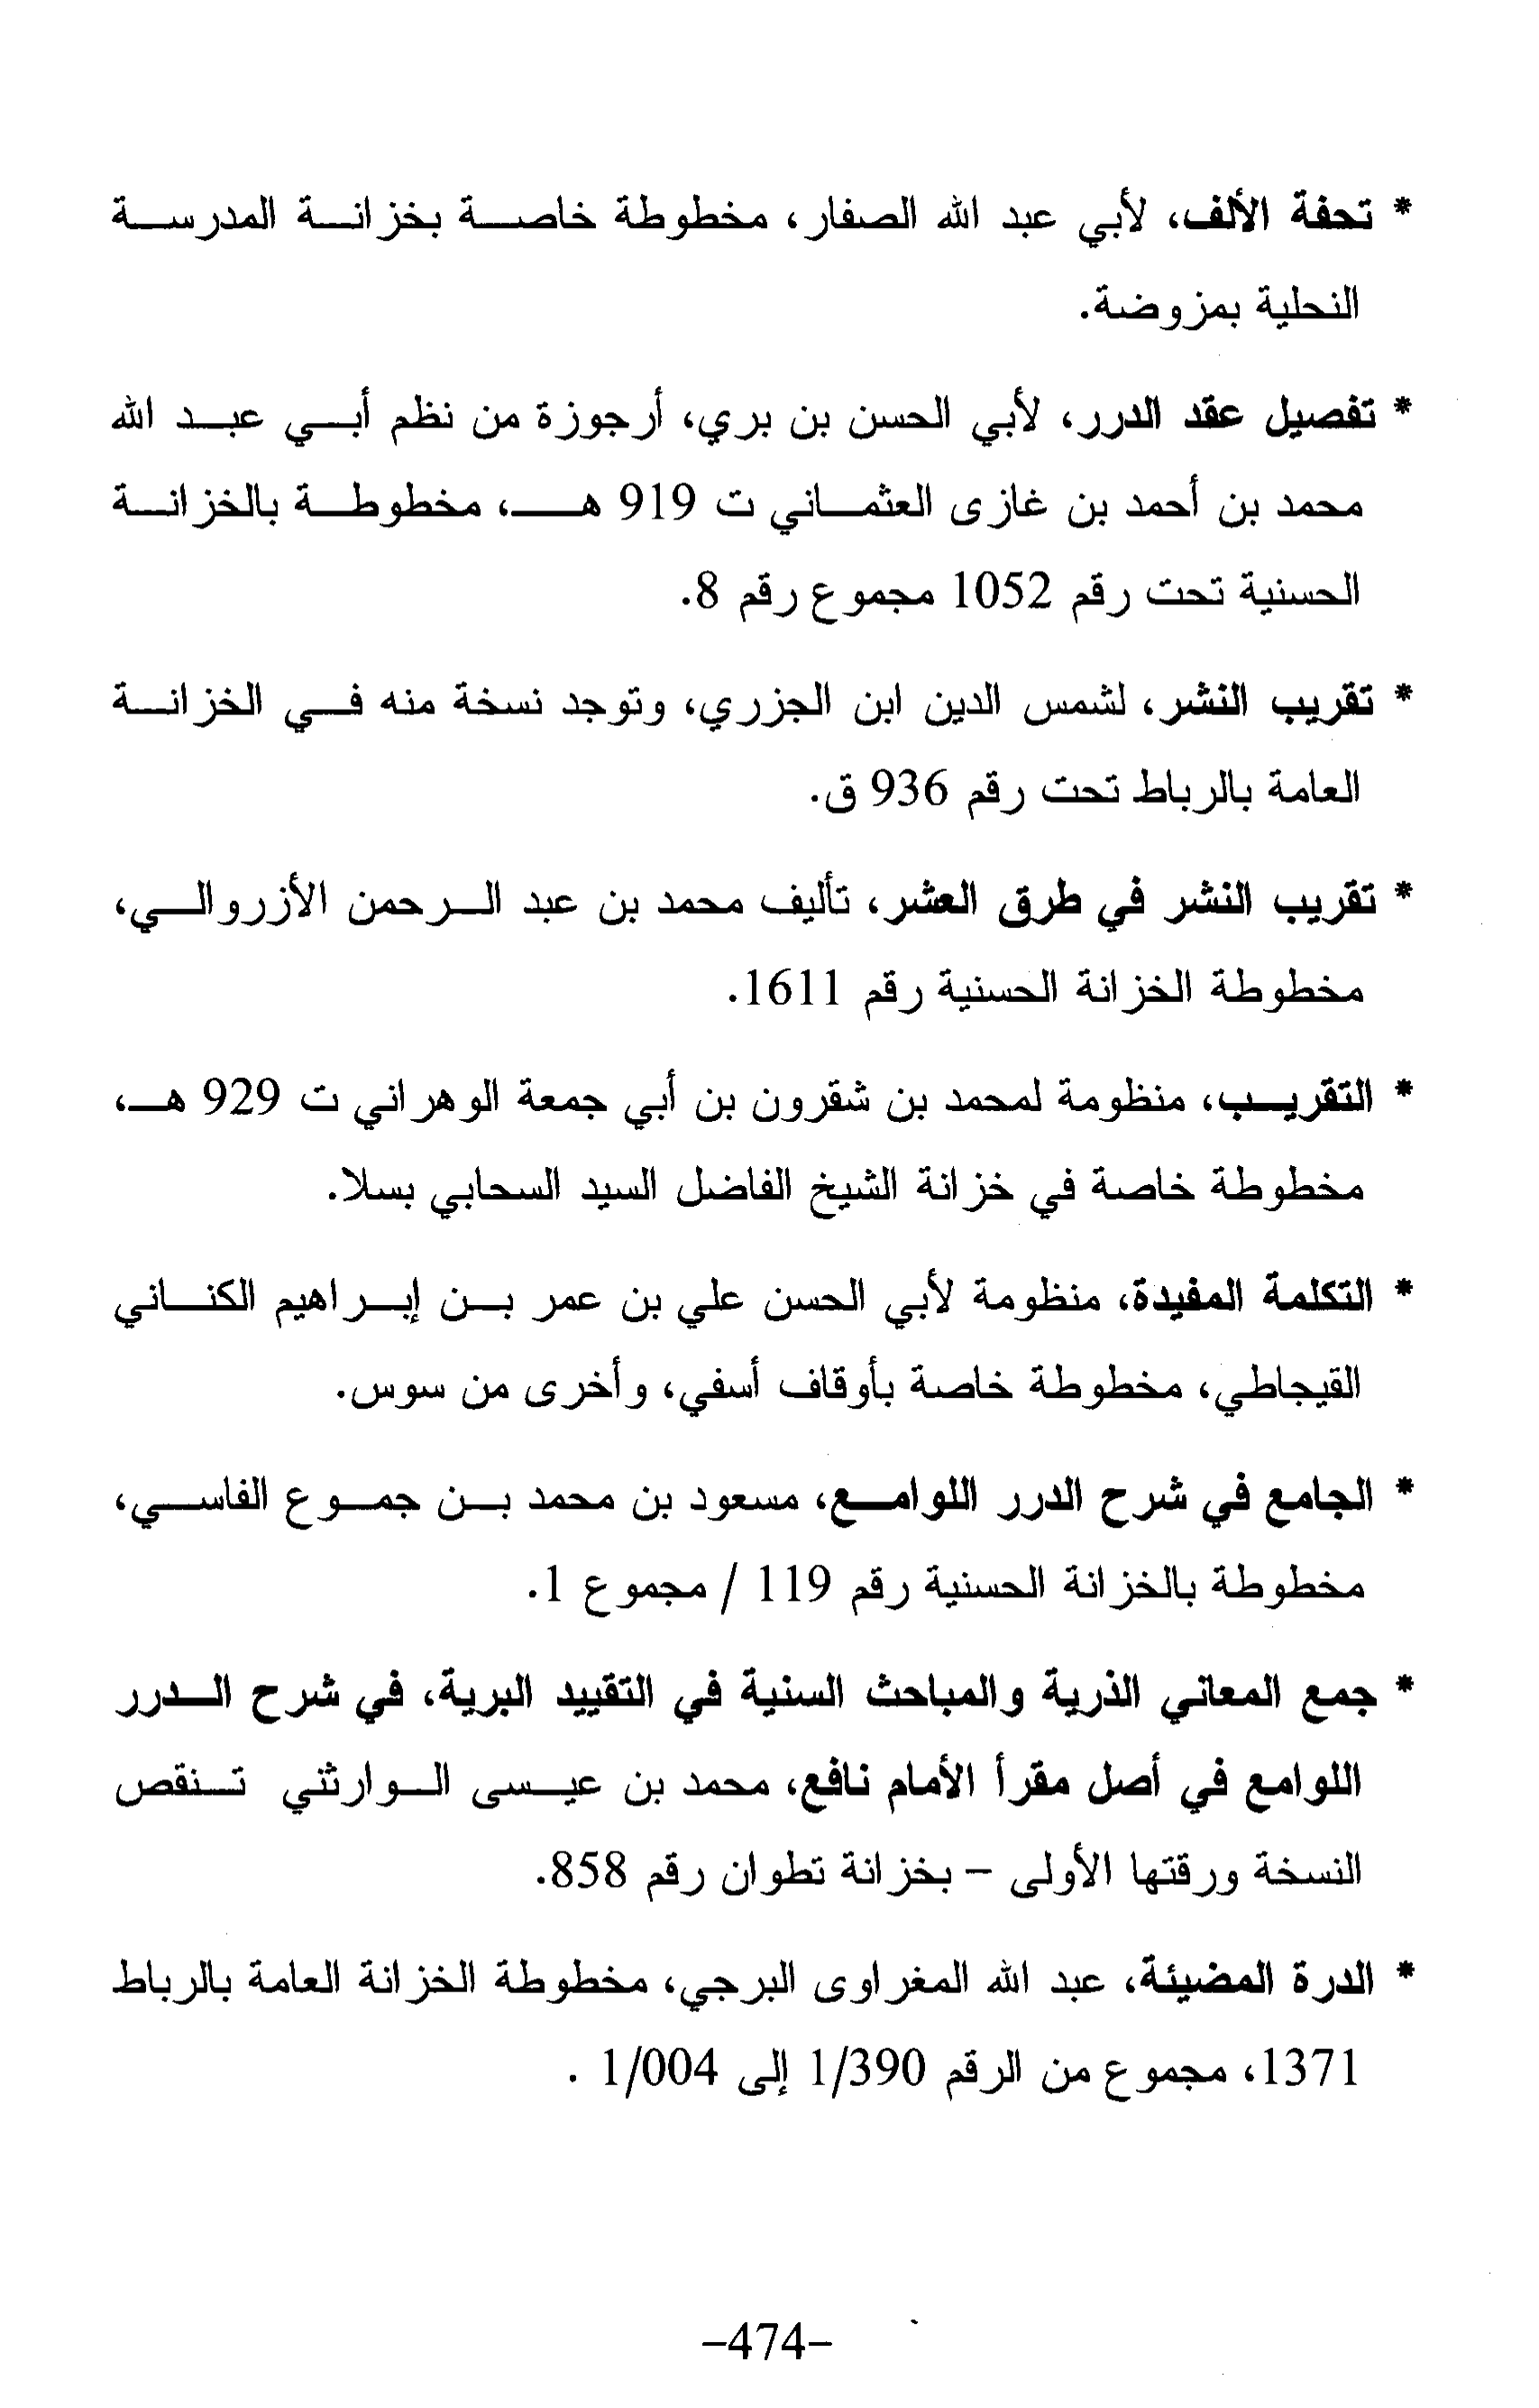 * تحفة الألف، لأبي عبد الله الصفار، مخطوطة خاصة بخزانة المدرسة
النحلية بمزوضة.
* تفصيل عقد الدرر، لأبي الحسن بن بري، أرجوزة من نظم أبي عبد الله
محمد بن أحمد بن غازى العثماني ت 919 هـ، مخطوطة بالخزانة
الحسنية تحت رقم 1052 مجموع رقم 8.
* تقريب النشر، لشمس الدين ابن الجزري، وتوجد نسخة منه في الخزانة
العامة بالرباط تحت رقم 936 ق.
* تقريب النشر في طرق العشر، تأليف محمد بن عبد الرحمن الأزروالي،
مخطوطة الخزانة الحسنية رقم 1611.
* التقريب، منظومة لمحمد بن شقرون بن أبي جمعة الوهراني ت 929 هـ،
مخطوطة خاصة في خزانة الشيخ الفاضل السيد السحابي بسلا.
* التكلمة المفيدة، منظومة لأبي الحسن علي بن عمر بن إبراهيم الكناني
القيجاطي، مخطوطة خاصة بأوقاف أسفي، وأخرى من سوس.
* الجامع في شرح الدرر اللوامع، مسعود بن محمد بن جموع الفاسي،
مخطوطة بالخزانة الحسنية رقم 119 / مجموع 1.
* جمع المعاني الذرية والمباحث السنية في التقييد البرية، في شرح الدرر
اللوامع في أصل مقرأ الأمام نافع، محمد بن عيسى الوارثني تنقص
النسخة ورقتها الأولى – بخزانة تطوان رقم 858.
* الدرة المضيئة، عبد الله المغراوى البرجي، مخطوطة الخزانة العامة بالرباط
1371، مجموع من الرقم 1/390 إلى 1/004 .
–474–